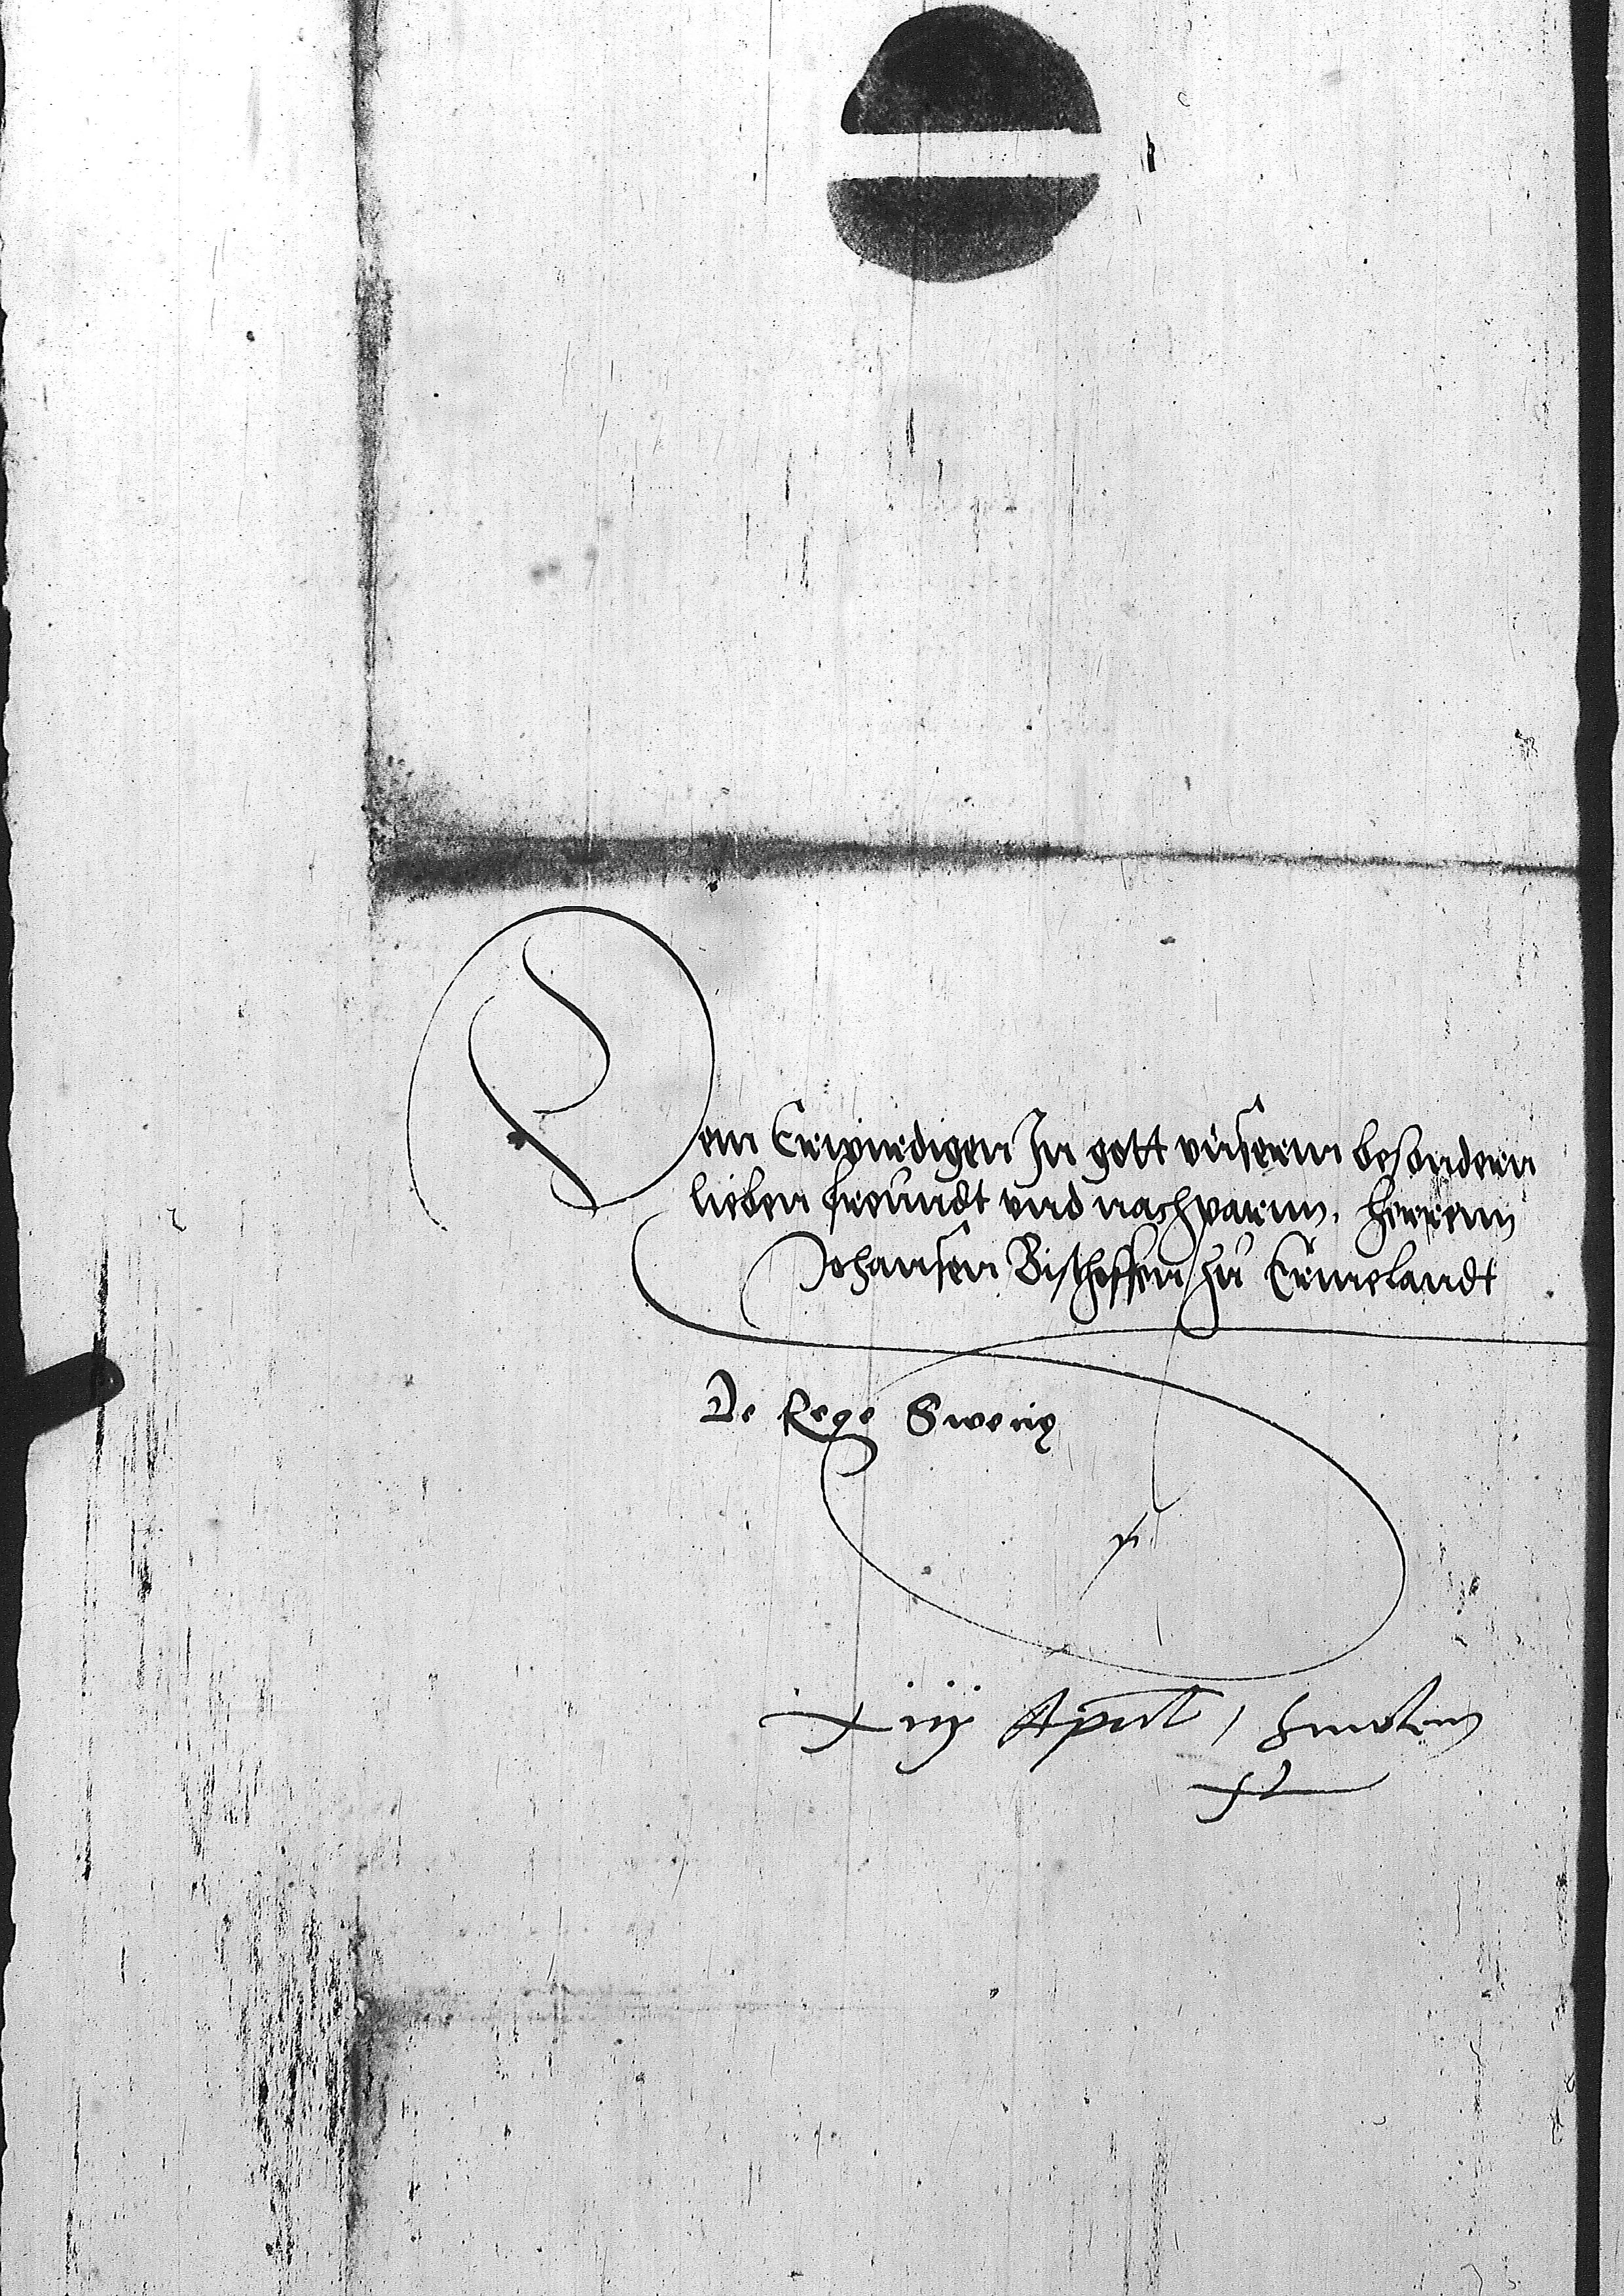 Dem Erwurdigen In gott vnserm besondern
lieben freundt vnd nachparnn, Herrenn
Johansen Bischoffen zu Ermelandt
De Rege Sweciȩ
xiij Aprilis